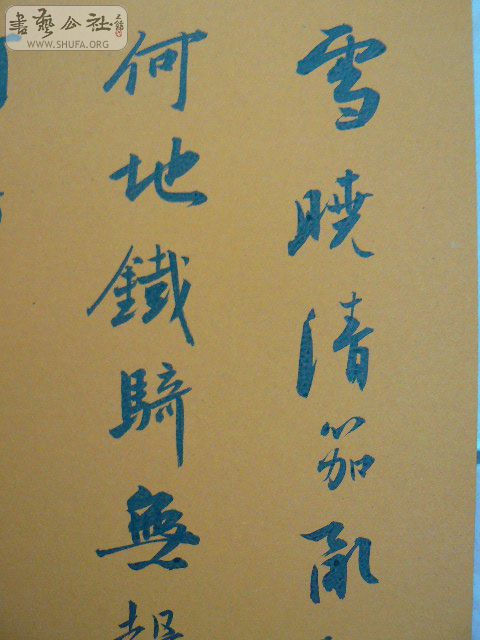 書藝公社
WWW.SHUFA.ORG
雪曉清笳亂
何地鐵騎無聲